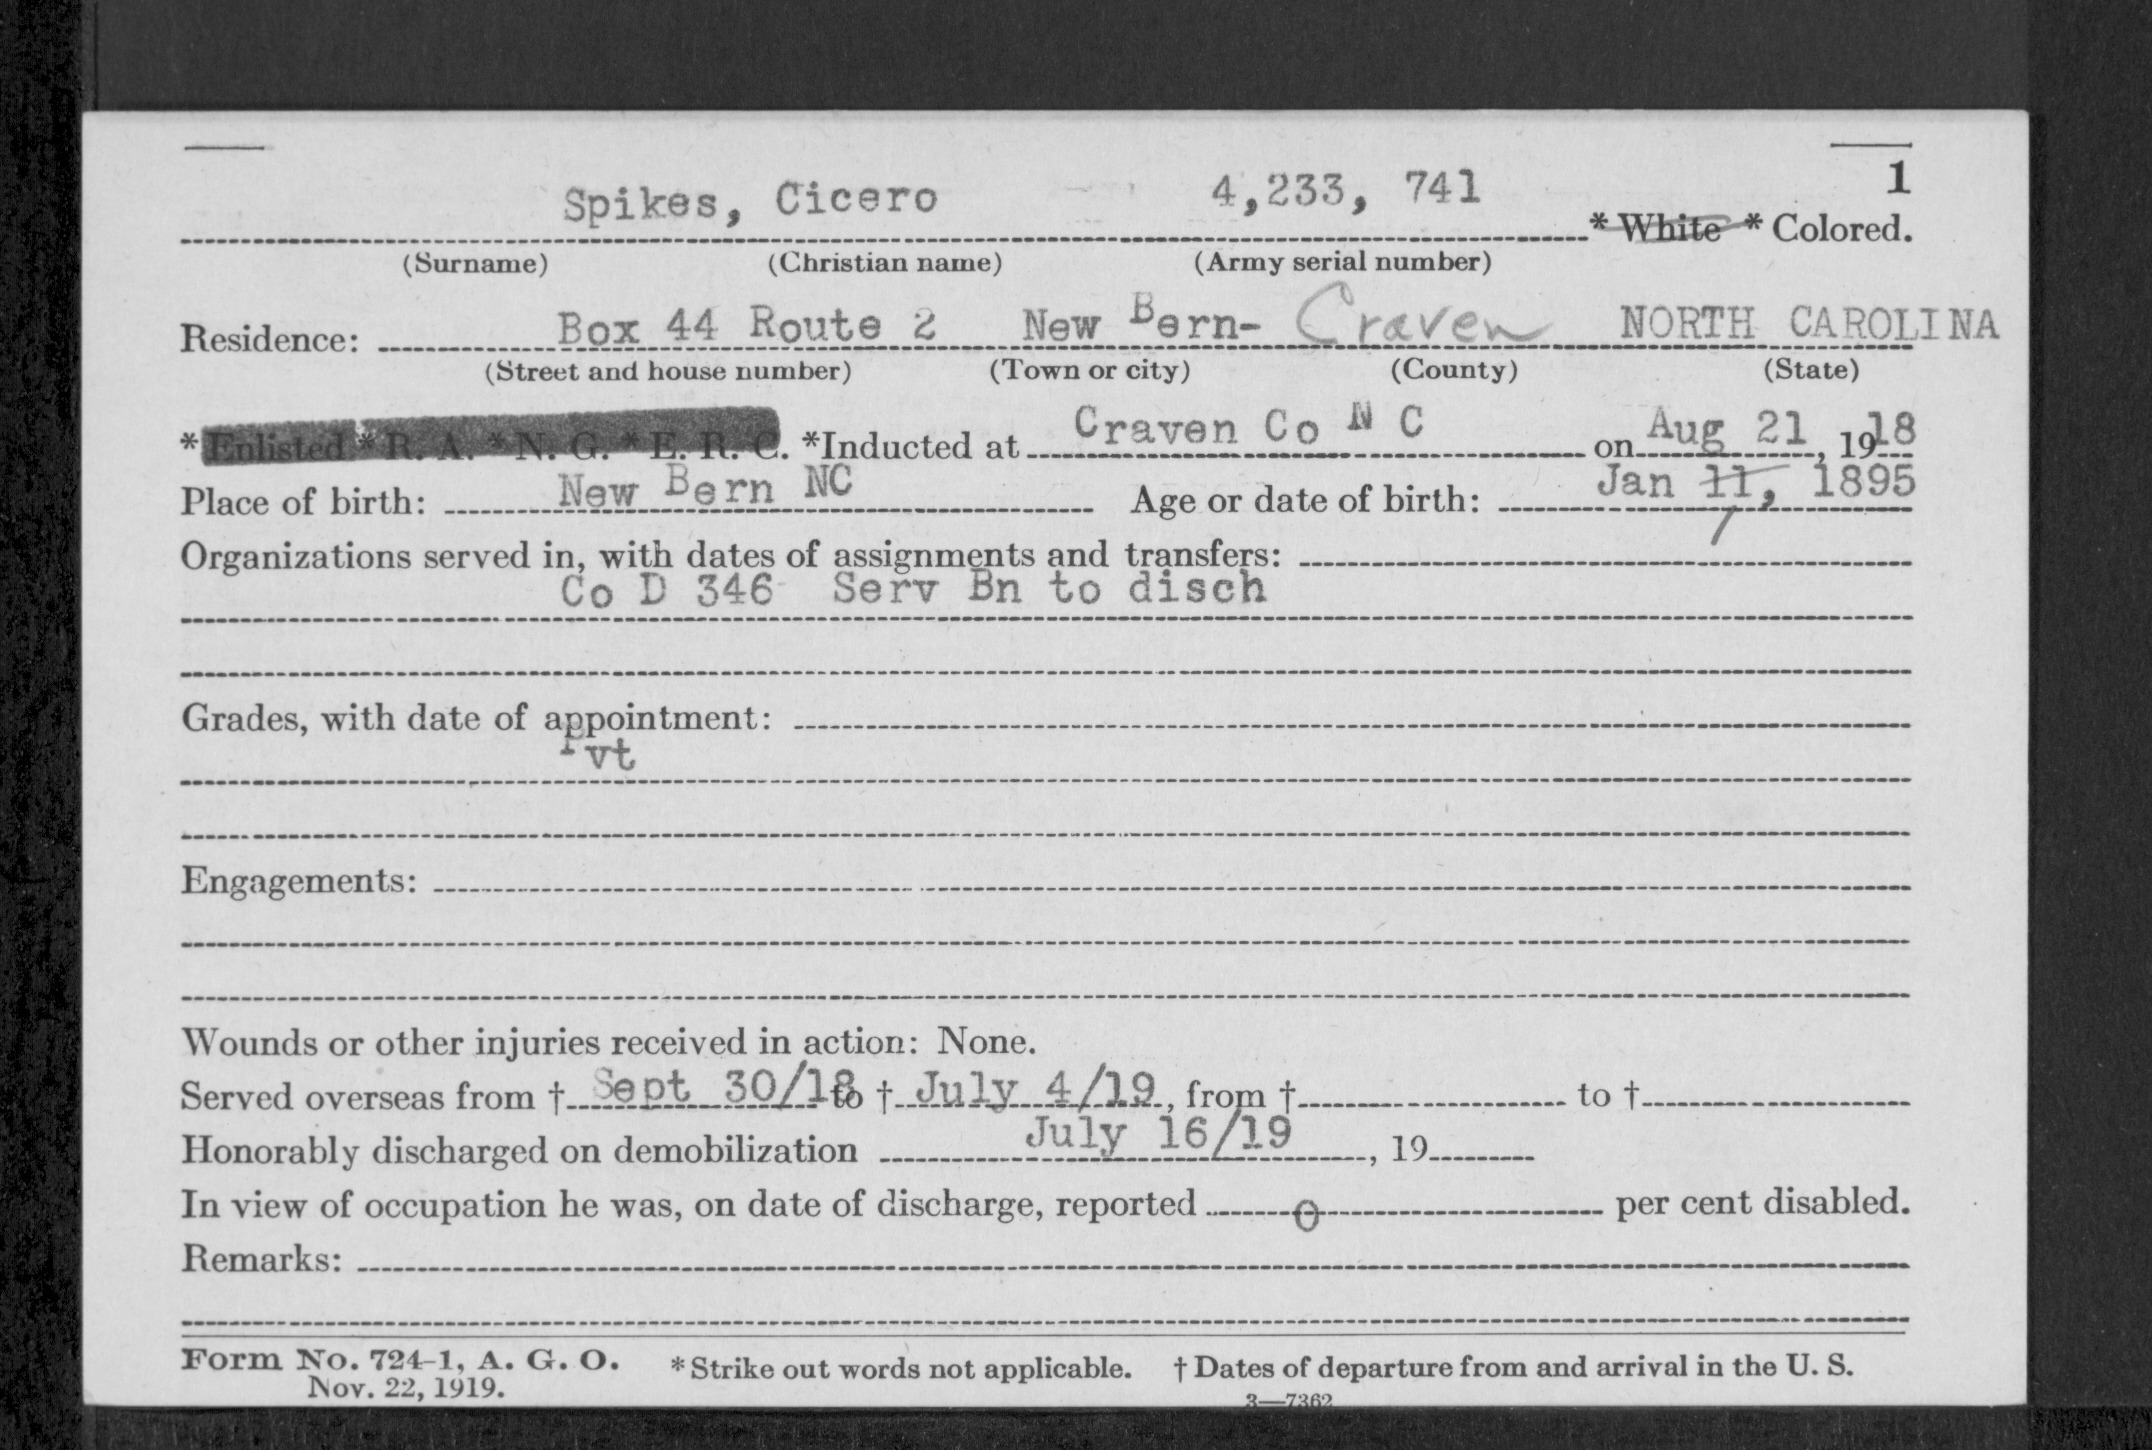 1
Spikes, Cicero 4,233, 741 * White * Colored.
(Surname) (Christian name) (Army serial number)
Residence: Box 44 Route 2 New Bern- Craven NORTH CAROLINA
(Street and house number) (Town or city) (County) (State)
* Enlisted * R. A. * N. G. * E. R. C. *Inducted at Craven Co N C on Aug 21, 1918
Place of birth: New Bern NC Age or date of birth: Jan 11, 1895
/
Organizations served in, with dates of assignments and transfers:
Co D 346 Serv Bn to disch
Grades, with date of appointment:
Pvt
Engagements:
Wounds or other injuries received in action: None.
Served overseas from † Sept 30/18 to † July 4/19, from † to †
Honorably discharged on demobilization July 16/19, 19
In view of occupation he was, on date of discharge, reported 0 per cent disabled.
Remarks:
Form No. 724-1, A. G. O. * Strike out words not applicable. † Dates of departure from and arrival in the U. S.
Nov. 22, 1919.
3—7362